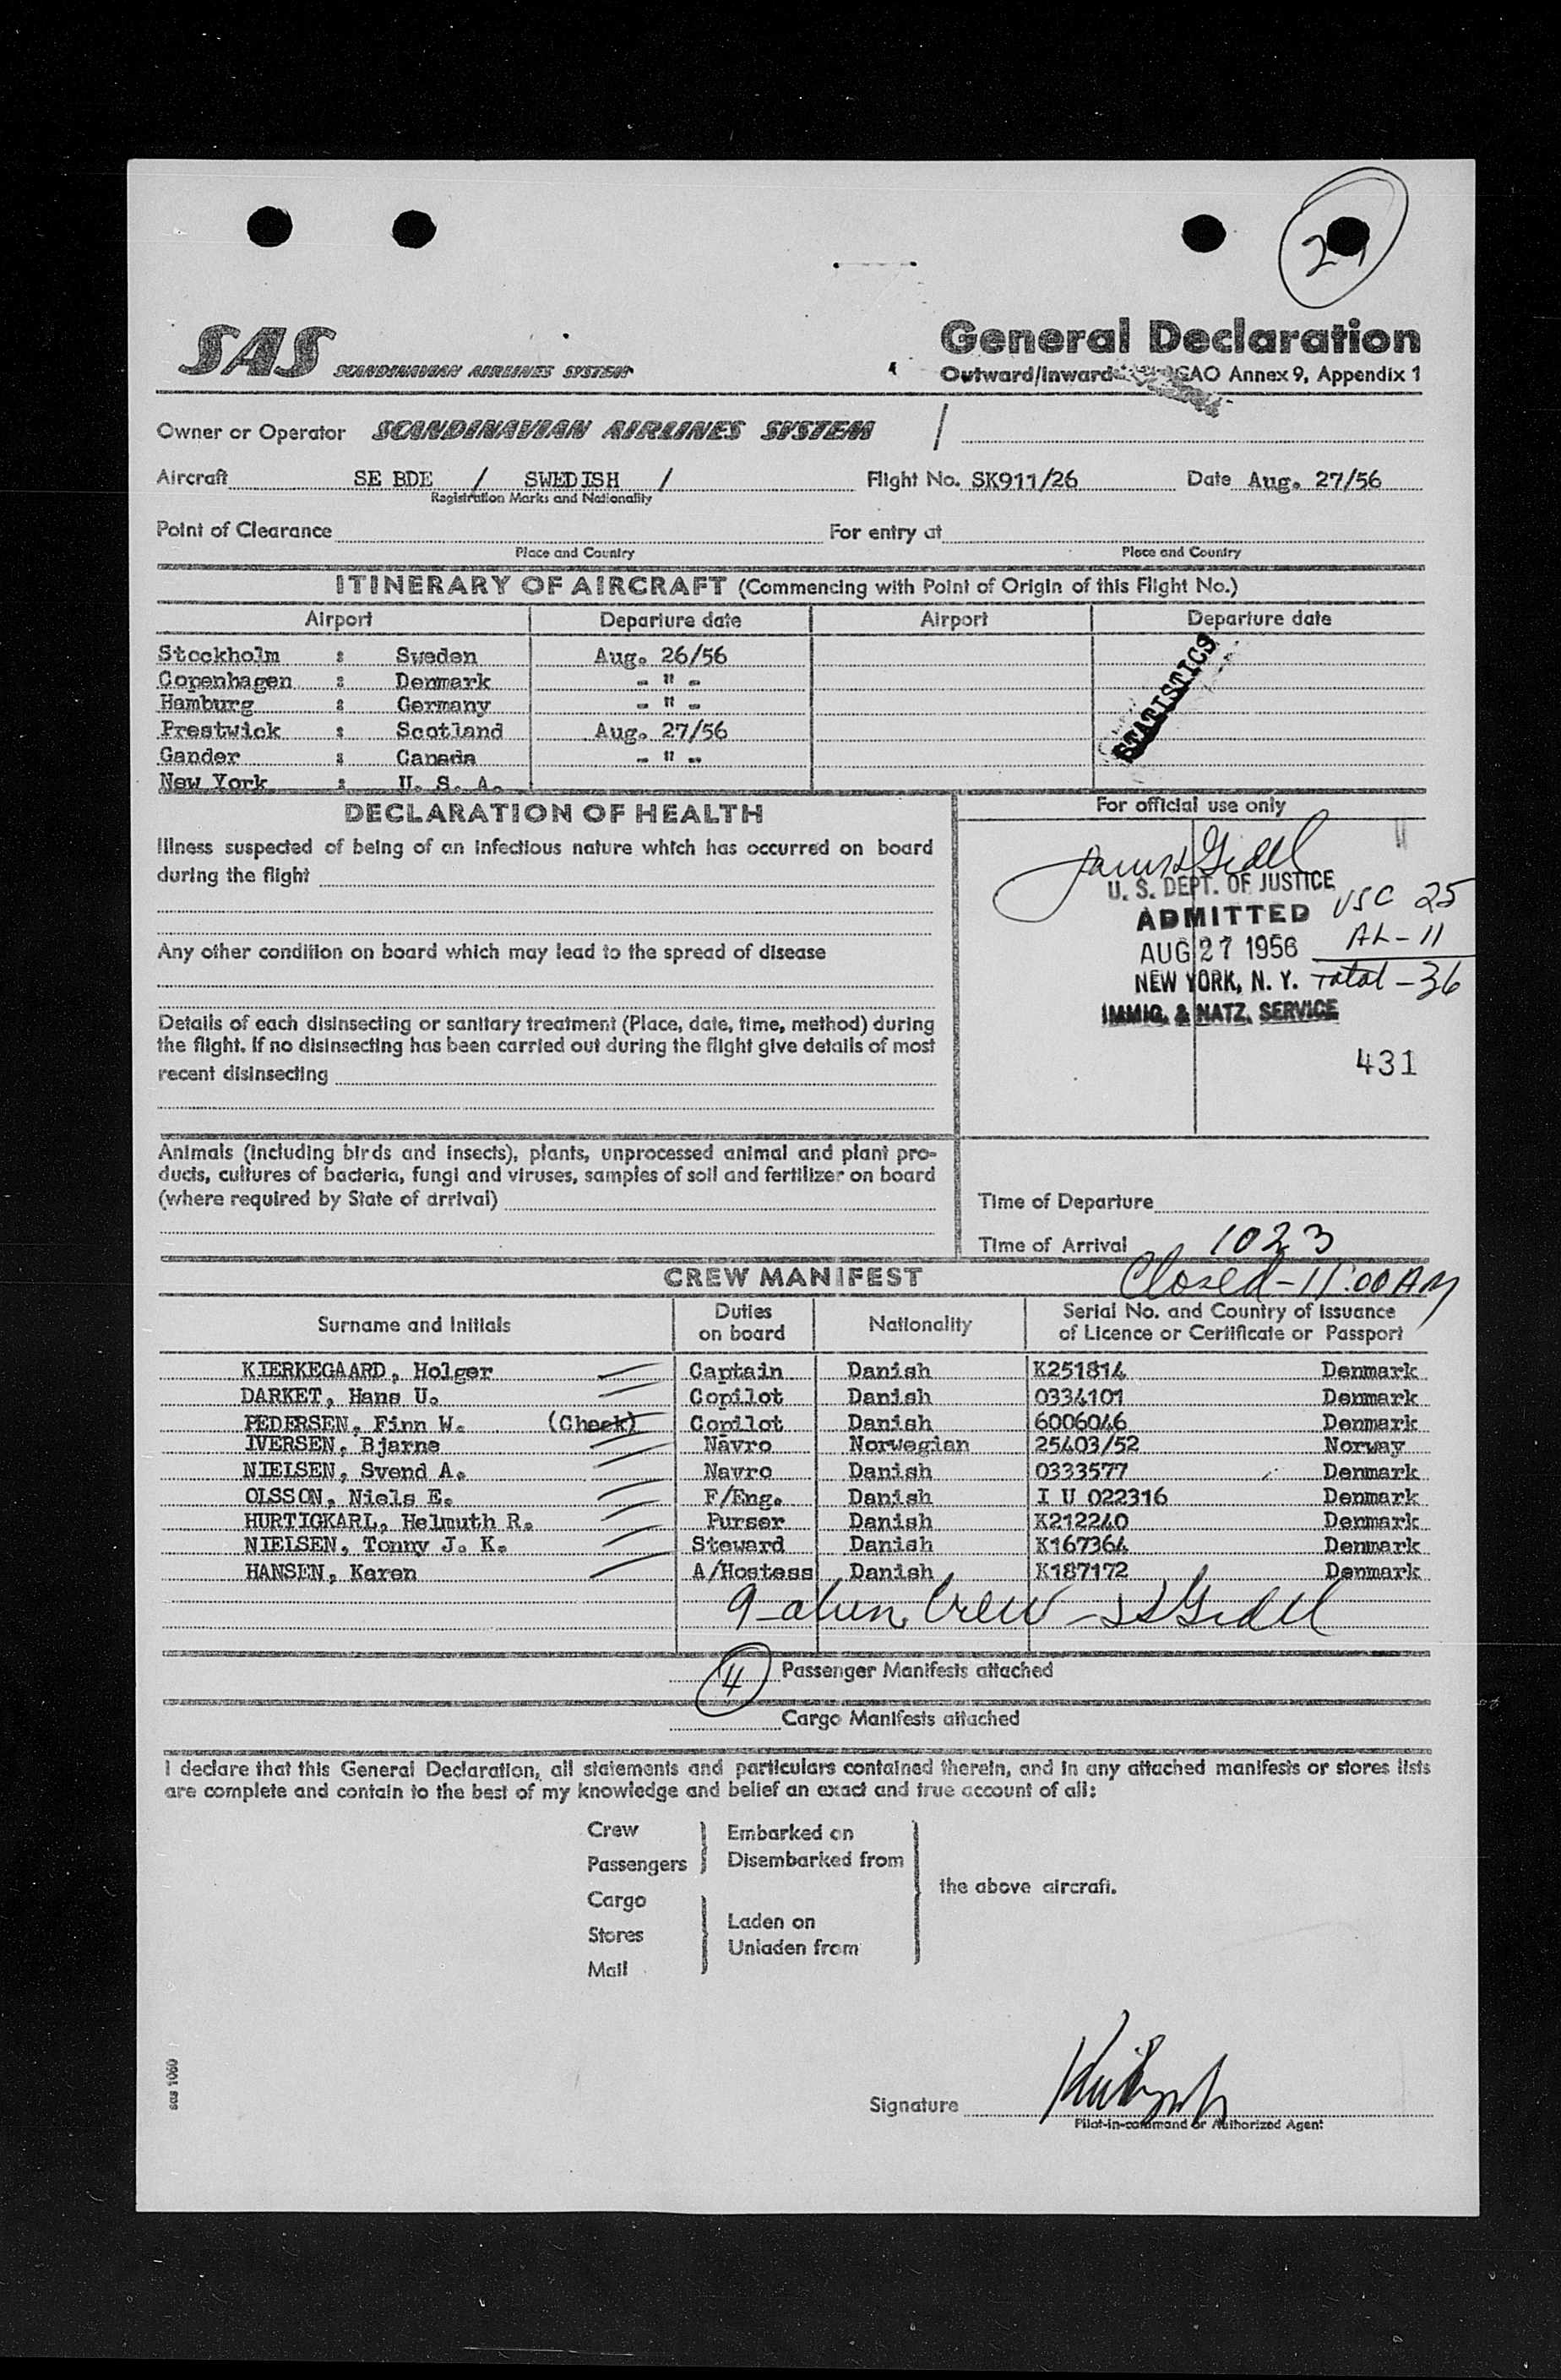 SAS SCANDINAVIAN AIRLINES SYSTEM
General Declaration
Outward/Inward CAO Annex 9, Appendix 1
Owner or Operator SCANDINAVIAN AIRLINES SYSTEM /
Aircraft SE BDE / SWEDISH / Flight No. SK911/26 Date Aug. 27/56
Registration Marks and Nationality
Point of Clearance For entry at
Place and Country Place and Country
ITINERARY OF AIRCRAFT (Commencing with Point of Origin of this Flight No.)
Airport Departure date Airport Departure date
Stockholm : Sweden Aug. 26/56
Copenhagen : Denmark - " -
Hamburg : Germany - " -
Prestwick : Scotland Aug. 27/56
Gander : Canada - " -
New York : U. S. A.
STATISTICS
DECLARATION OF HEALTH
Illness suspected of being of an infectious nature which has occurred on board
during the flight
Any other condition on board which may lead to the spread of disease
Details of each disinsecting or sanitary treatment (Place, date, time, method) during
the flight. If no disinsecting has been carried out during the flight give details of most
recent disinsecting
Animals (including birds and insects), plants, unprocessed animal and plant pro-
ducts, cultures of bacteria, fungi and viruses, samples of soil and fertilizer on board
(where required by State of arrival)
For official use only
U. S. DEPT. OF JUSTICE
ADMITTED
AUG 27 1956
NEW YORK, N. Y.
IMMIG. & NATZ. SERVICE
USC 25
AL - 11
Total - 36
431
Time of Departure
Time of Arrival 1023
Closed - 11:00 AM
CREW MANIFEST
Surname and Initials Duties on board Nationality Serial No. and Country of Issuance of Licence or Certificate or Passport
KIERKEGAARD, Holger Captain Danish K251814 Denmark
DARKET, Hans U. Copilot Danish 0334101 Denmark
PEDERSEN, Finn W. (Check) Copilot Danish 6006046 Denmark
IVERSEN, Bjarne Navro Norwegian 25403/52 Norway
NIELSEN, Svend A. Navro Danish 0333577 Denmark
OLSSON, Niels E. F/Eng. Danish I U 022316 Denmark
HURTIGKARL, Helmuth R. Purser Danish K212240 Denmark
NIELSEN, Tonny J. K. Steward Danish K167364 Denmark
HANSEN, Karen A/Hostess Danish K187172 Denmark
9 - alien Crew -
4 Passenger Manifests attached
Cargo Manifests attached
I declare that this General Declaration, all statements and particulars contained therein, and in any attached manifests or stores lists
are complete and contain to the best of my knowledge and belief an exact and true account of all:
Crew
Passengers
Embarked on
Disembarked from
Cargo
Stores
Mail
Laden on
Unladen from
the above aircraft.
sas 1060
Signature
Pilot-in-command or Authorized Agent